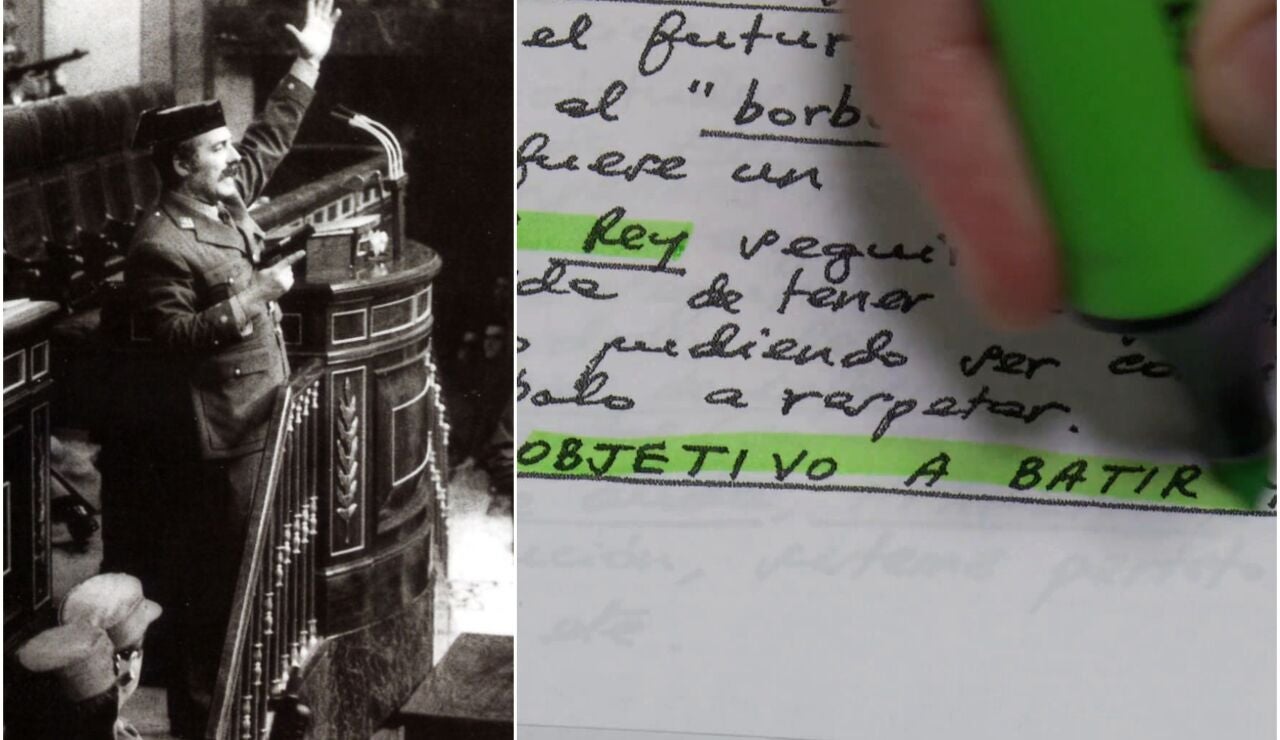 el futur
el "borb
fuese un
Rey segui
de de tener
pudiendo ser co
bolo a respetar.
OBJETIVO A BATIR
ución, sistema
etc.